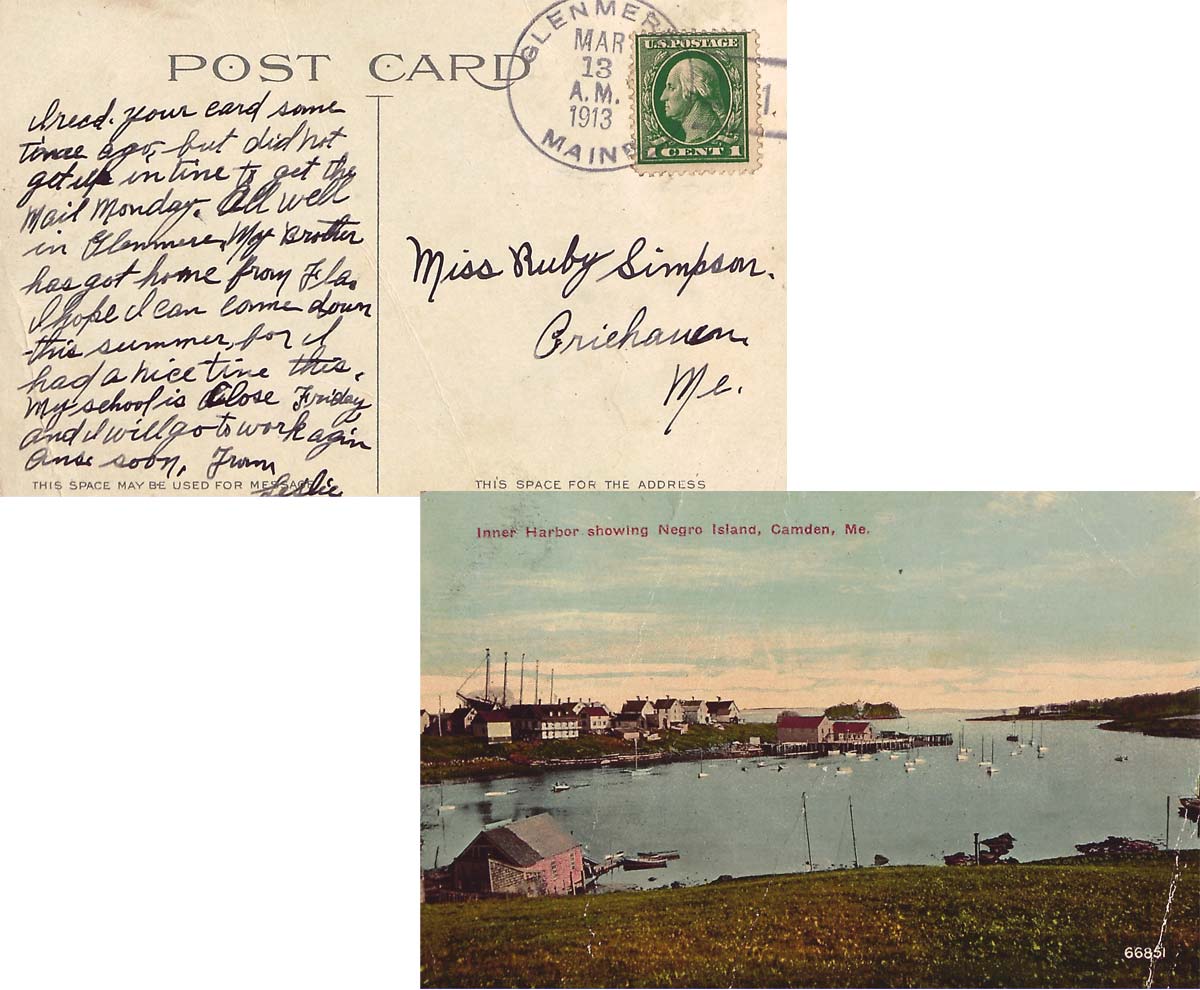 POST CARD
GLENMERE
MAR
13
A.M.
1913
MAINE
U.S. POSTAGE
1 CENT 1
1
I recd. your card some
time ago, but did not
get up in tine to get the
Mail Monday. All well
in Glenmere, My Brother
has got home from Fla.
I hope I can come down
this summer, for I
had a nice tine this.
My school is Close Friday
and I will go to work agin
soon, From
Leslie
Miss Ruby Simpson.
Criehaven
Me.
THIS SPACE MAY BE USED FOR MESSAGE
THIS SPACE FOR THE ADDRESS
Inner Harbor showing Negro Island, Camden, Me.
66851